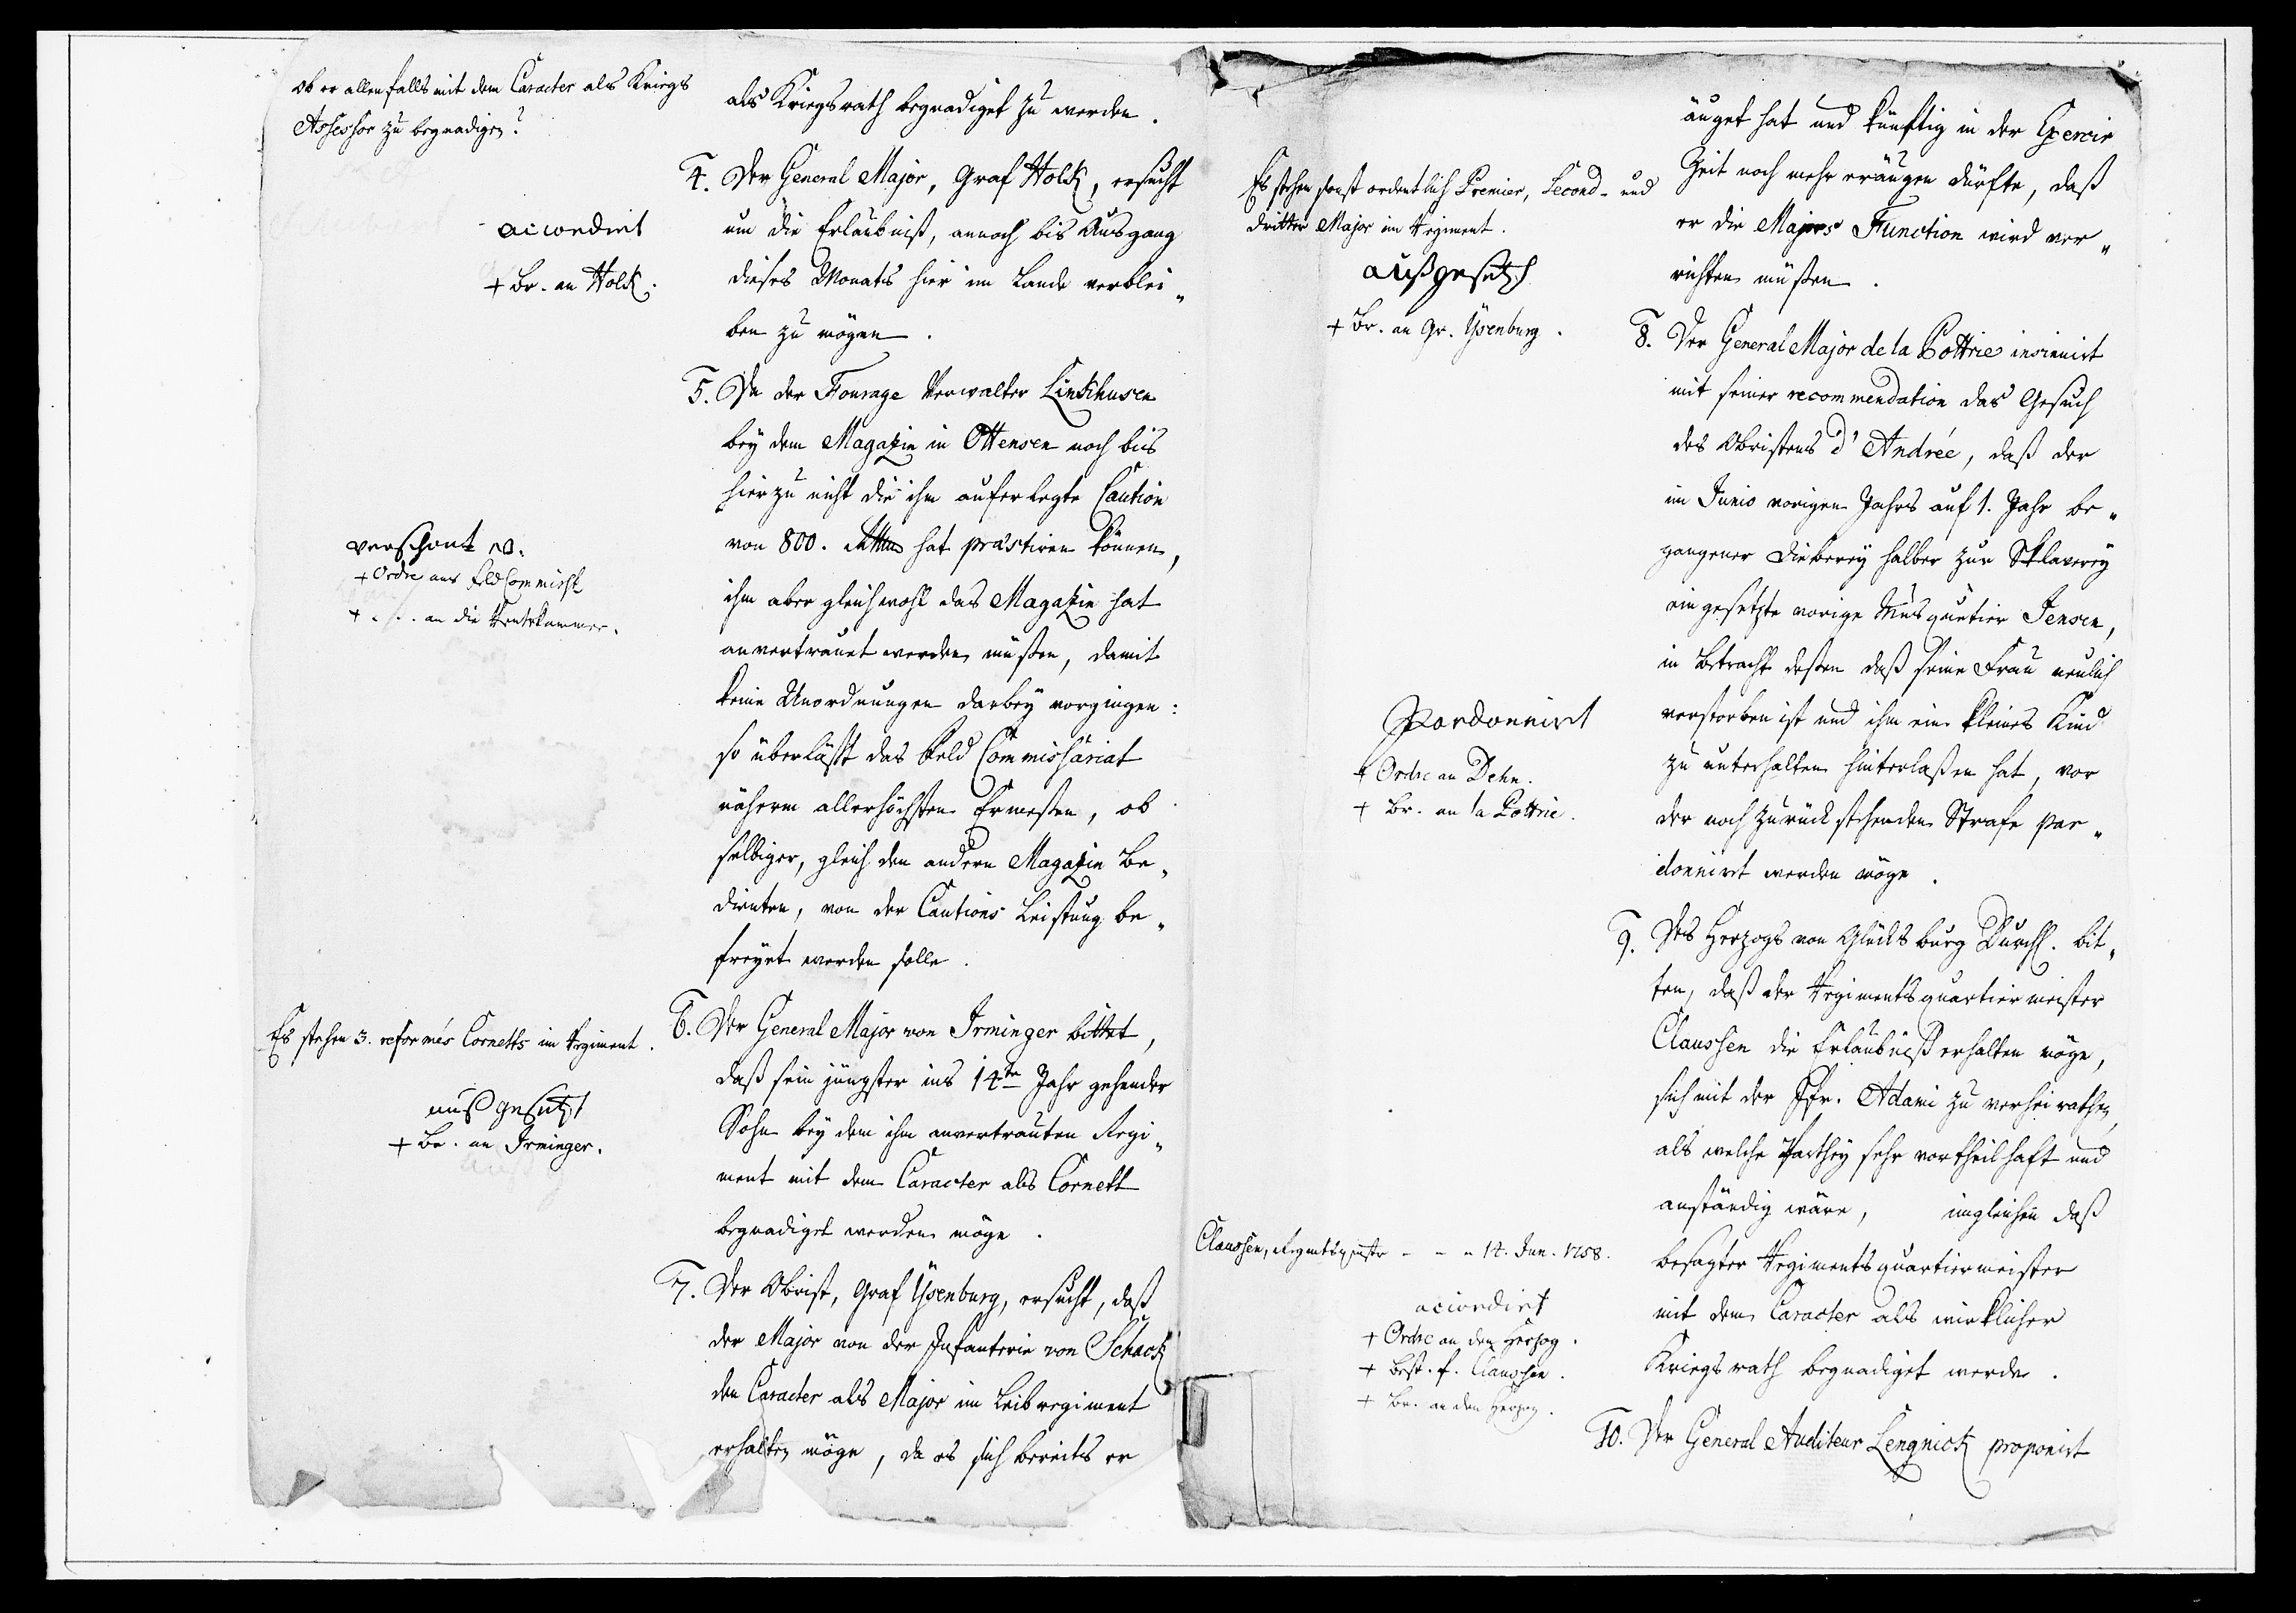 ob er allenfalls mit dem Caracter als Kriegs
Assessor zu begnadigen?
als Kriegsrath begnadiget zu werden.
4. Der General Major, Graf Holck, ersucht
um die Erlaubniß, annoch bis Ausgang
dieses Monats hier im Lande verblei„
ben zu mögen.
accordirt
+ Br. an Holck.
5. Da der Fourage Verwalter Linckhusen
bey dem Magazin in Ottensen noch bis
hierzu nicht die ihm auferlegte Caution
von 800. Rthlr hat præstiren können,
ihm aber gleichwohl das Magazin hat
anvertrauet werden müßen, damit
keine Unordnungen darbey vorgingen:
so überläßt das Feld Commissariat
näherm allerhöchsten Ermeßen, ob
selbiger, gleich den andern Magazin Be„
dienten, von der Cautions Leistung be„
freyet werden solle.
verschont
+ Ordre ans Feld Commisst
+ . / . . an die Rentekammer.
6. Der General Major von Irminger bittet,
daß sein jüngster ins 14te Jahr gehender
Sohn bey dem ihm anvertrauten Regi„
ment mit dem Caracter als Cornett
begnadiget werden möge.
Es stehen 3. reformés Cornetts im Regiment.
ausgesetzt
+ Br. an Irminger.
7. Der Obrist, Graf Ysenburg, ersucht, daß
der Major von der Infanterie von Schack
den Caracter als Major im Leibregiment
erhalten möge, da es sich bereits er
äuget hat und künftig in der Exercir
Zeit noch mehr eräugen dürfte, daß
er die Majors Function wird ver„
richten müßen.
Es stehen sonst ordentlich Premier, Second- und
dritter Major im Regiment.
außgesetzt
+ Br. an Gr. Ysenburg.
8. Der General Major de la Pottrie insinuirt
mit seiner recommendation das Gesuch
des Obristens d'Andrée, daß der
im Junio vorigen Jahrs auf 1. Jahr be„
gangener Dieberey halber zur Sklaverey
eingesetzte vorige Musquetier Jensen,
in Betracht deßen daß seine Frau neulich
verstorben ist und ihm ein kleines Kind
zu unterhalten hinterlaßen hat, vor
der noch zurück stehenden Strafe par„
donnirt werden möge.
Pardonnirt
+ Ordre an Dehn.
+ Br. an la Pottrie.
9. Des Herzogs von Glücksburg Durchl. bit„
ten, daß der Regimentsquartiermeister
Claussen die Erlaubniß erhalten möge,
sich mit der Jfr. Adami zu verheirathen,
als welche Parthey sehr vortheilhaft und
anständig wäre, imgleichen daß
besagter Regimentsquartiermeister
mit dem Caracter als wirklicher
Kriegsrath begnadiget werde.
Claussen, Regmtsqmstr - - - 14. Jun. 1758.
accordirt
+ Ordre an den Herzog.
+ Best. f. Claussen.
+ Br. an den Herzog.
10. Der General Auditeur Lengnick proponirt